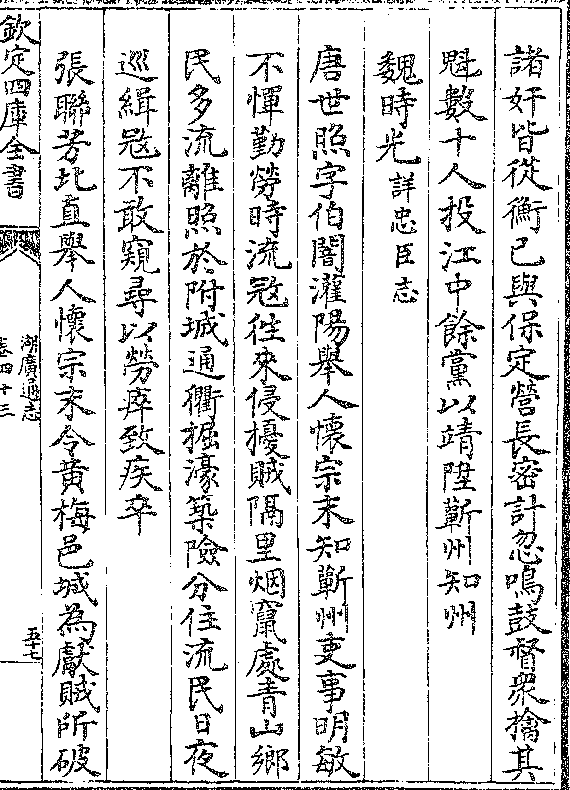 諸奸皆從衡已與保定營長密計忽鳴鼓督衆擒其
魁數十人投江中餘黨以靖陞蘄州知州
魏時光詳忠臣志
唐世照字伯闇灌陽舉人懷宗末知蘄州吏事明敏
不憚勤勞時流冦徃來侵擾賊隔里烟竄處青山鄉
民多流離照於附城通衢掘濠築險分住流民日夜
巡緝冦不敢窺尋以勞瘁致疾卒
張聯芳北直舉人懷宗末令黄梅邑城為獻賊所破
欽定四庫全書
湖廣通志
卷四十三
五十七